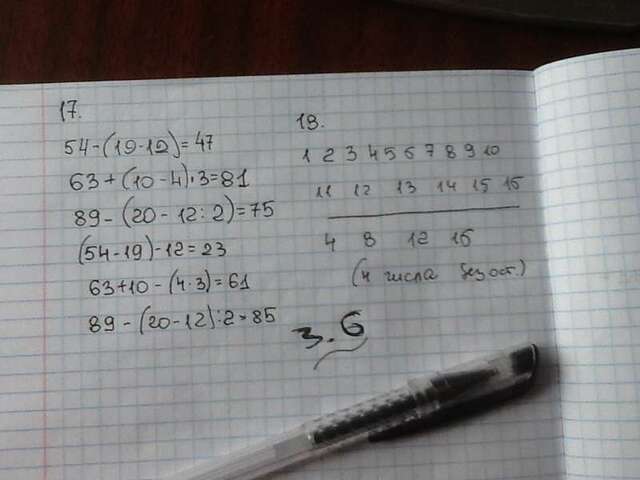 17.
54-(19-12)=47
63+(10-4)·3=81
89-(20-12:2)=75
(54-19)-12=23
63+10-(4·3)=61
89-(20-12):2=85
18.
1 2 3 4 5 6 7 8 9 10
11 12 13 14 15 16
4 8 12 16
(4 числа без ост.)
3.6